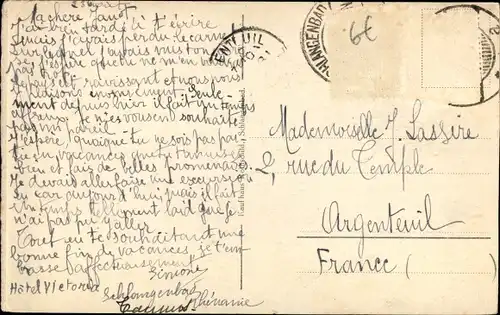 Ma chère Janot
J'ai bien tardé à t'écrire
mais j'avais perdu le carnet
sur lequel j'avais mis ton
j'espère que tu ne m'en
ravissant et nous nous
plaisons énormément. Seule-
ment depuis hier il fait un temps
affreux. Je n'en souhaite
pas un pareil
J'espère, quoique tu ne sois pas par-
tie en vacances que tu t'amuses
bien et fais de belles promenades.
Je devais aller faire une excursion
en car aujourd'hui mais il fait
un temps tellement laid que je
n'ai pas pu y aller
Tout en te souhaitant une
bonne fin de vacances je t'em-
brasse affectueusement
Simone
Hôtel Victoria
Schlangenbad
Taunus Rhénanie
ENTEUIL
SCHLANGENBAD
6€
Mademoiselle J. Lassire
2, rue du Temple
Argenteuil
France ( )